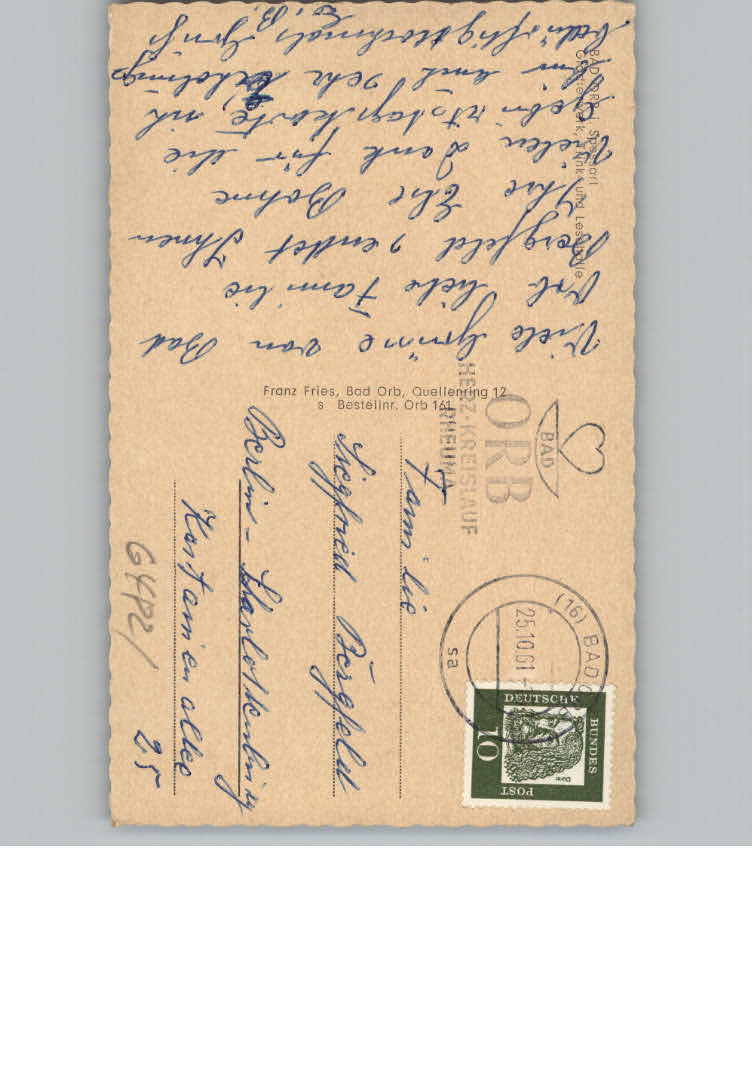 BAD ORB i. Spessart
Viele Grüsse von Bad
Orb liebe Familie
Bergfeld sendet Ihnen
Ihre Ehe Bohne
Vielen Dank für die
Geburtstagskarte,
und sehr
nochmals Gruß
E. B.
Franz Fries, Bad Orb, Quellenring 12
s Bestellnr. Orb 161
BAD
ORB
HERZ-KREISLAUF
RHEUMA
(16) BAD
25.10.61
sa
DEUTSCHE
BUNDES
POST
10
Dürer
Familie
Siegfried Bergfeld
Berlin - Charlottenburg
Kastanienallee
25